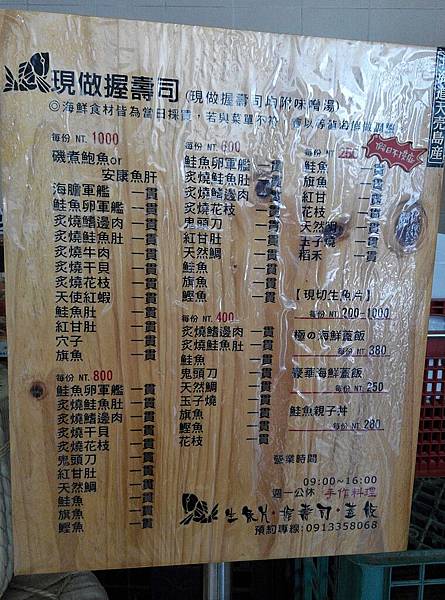 現做握壽司 (現做握壽司均附味噌湯)
◎海鮮食材皆為當日採買，若與菜單不符
每份 NT. 1000
磯煮鮑魚or
安康魚肝
海膽軍艦 一貫
鮭魚卵軍艦 一貫
炙燒鰭邊肉 一貫
炙燒鮭魚肚 一貫
炙燒牛肉 一貫
炙燒干貝 一貫
炙燒花枝 一貫
天使紅蝦 一貫
鮭魚肚 一貫
紅甘肚 一貫
穴子 一貫
旗魚 一貫
每份 NT. 800
鮭魚卵軍艦 一貫
炙燒鮭魚肚 一貫
炙燒鰭邊肉 一貫
炙燒干貝 一貫
炙燒花枝 一貫
鬼頭刀 一貫
紅甘肚 一貫
天然鯛 一貫
鮭魚 一貫
旗魚 一貫
鰹魚 一貫
每份 NT. 600
鮭魚卵軍艦 一貫
炙燒鮭魚肚 一貫
炙燒鰭邊肉 一貫
炙燒花枝 一貫
鬼頭刀 一貫
紅甘肚 一貫
天然鯛 一貫
鮭魚 一貫
旗魚 一貫
鰹魚 一貫
每份 NT. 400
炙燒鰭邊肉 一貫
炙燒鮭魚肚 一貫
鮭魚 一貫
鬼頭刀 一貫
天然鯛 一貫
玉子燒 一貫
旗魚 一貫
鰹魚 一貫
花枝 一貫
每份 NT. 250
假日不供應
鮭魚 一貫
旗魚 一貫
紅甘 一貫
花枝 一貫
天然鯛 一貫
玉子燒 一貫
稻禾 一貫
【現切生魚片】
每份 NT. 200-1000
極の海鮮蓋飯
每份 NT. 380
豪華海鮮蓋飯
每份 NT. 250
鮭魚親子丼
每份 NT. 280
營業時間
09:00~16:00
週一公休 手作料理
生魚片・握壽司・蓋飯
預約專線:0913358068